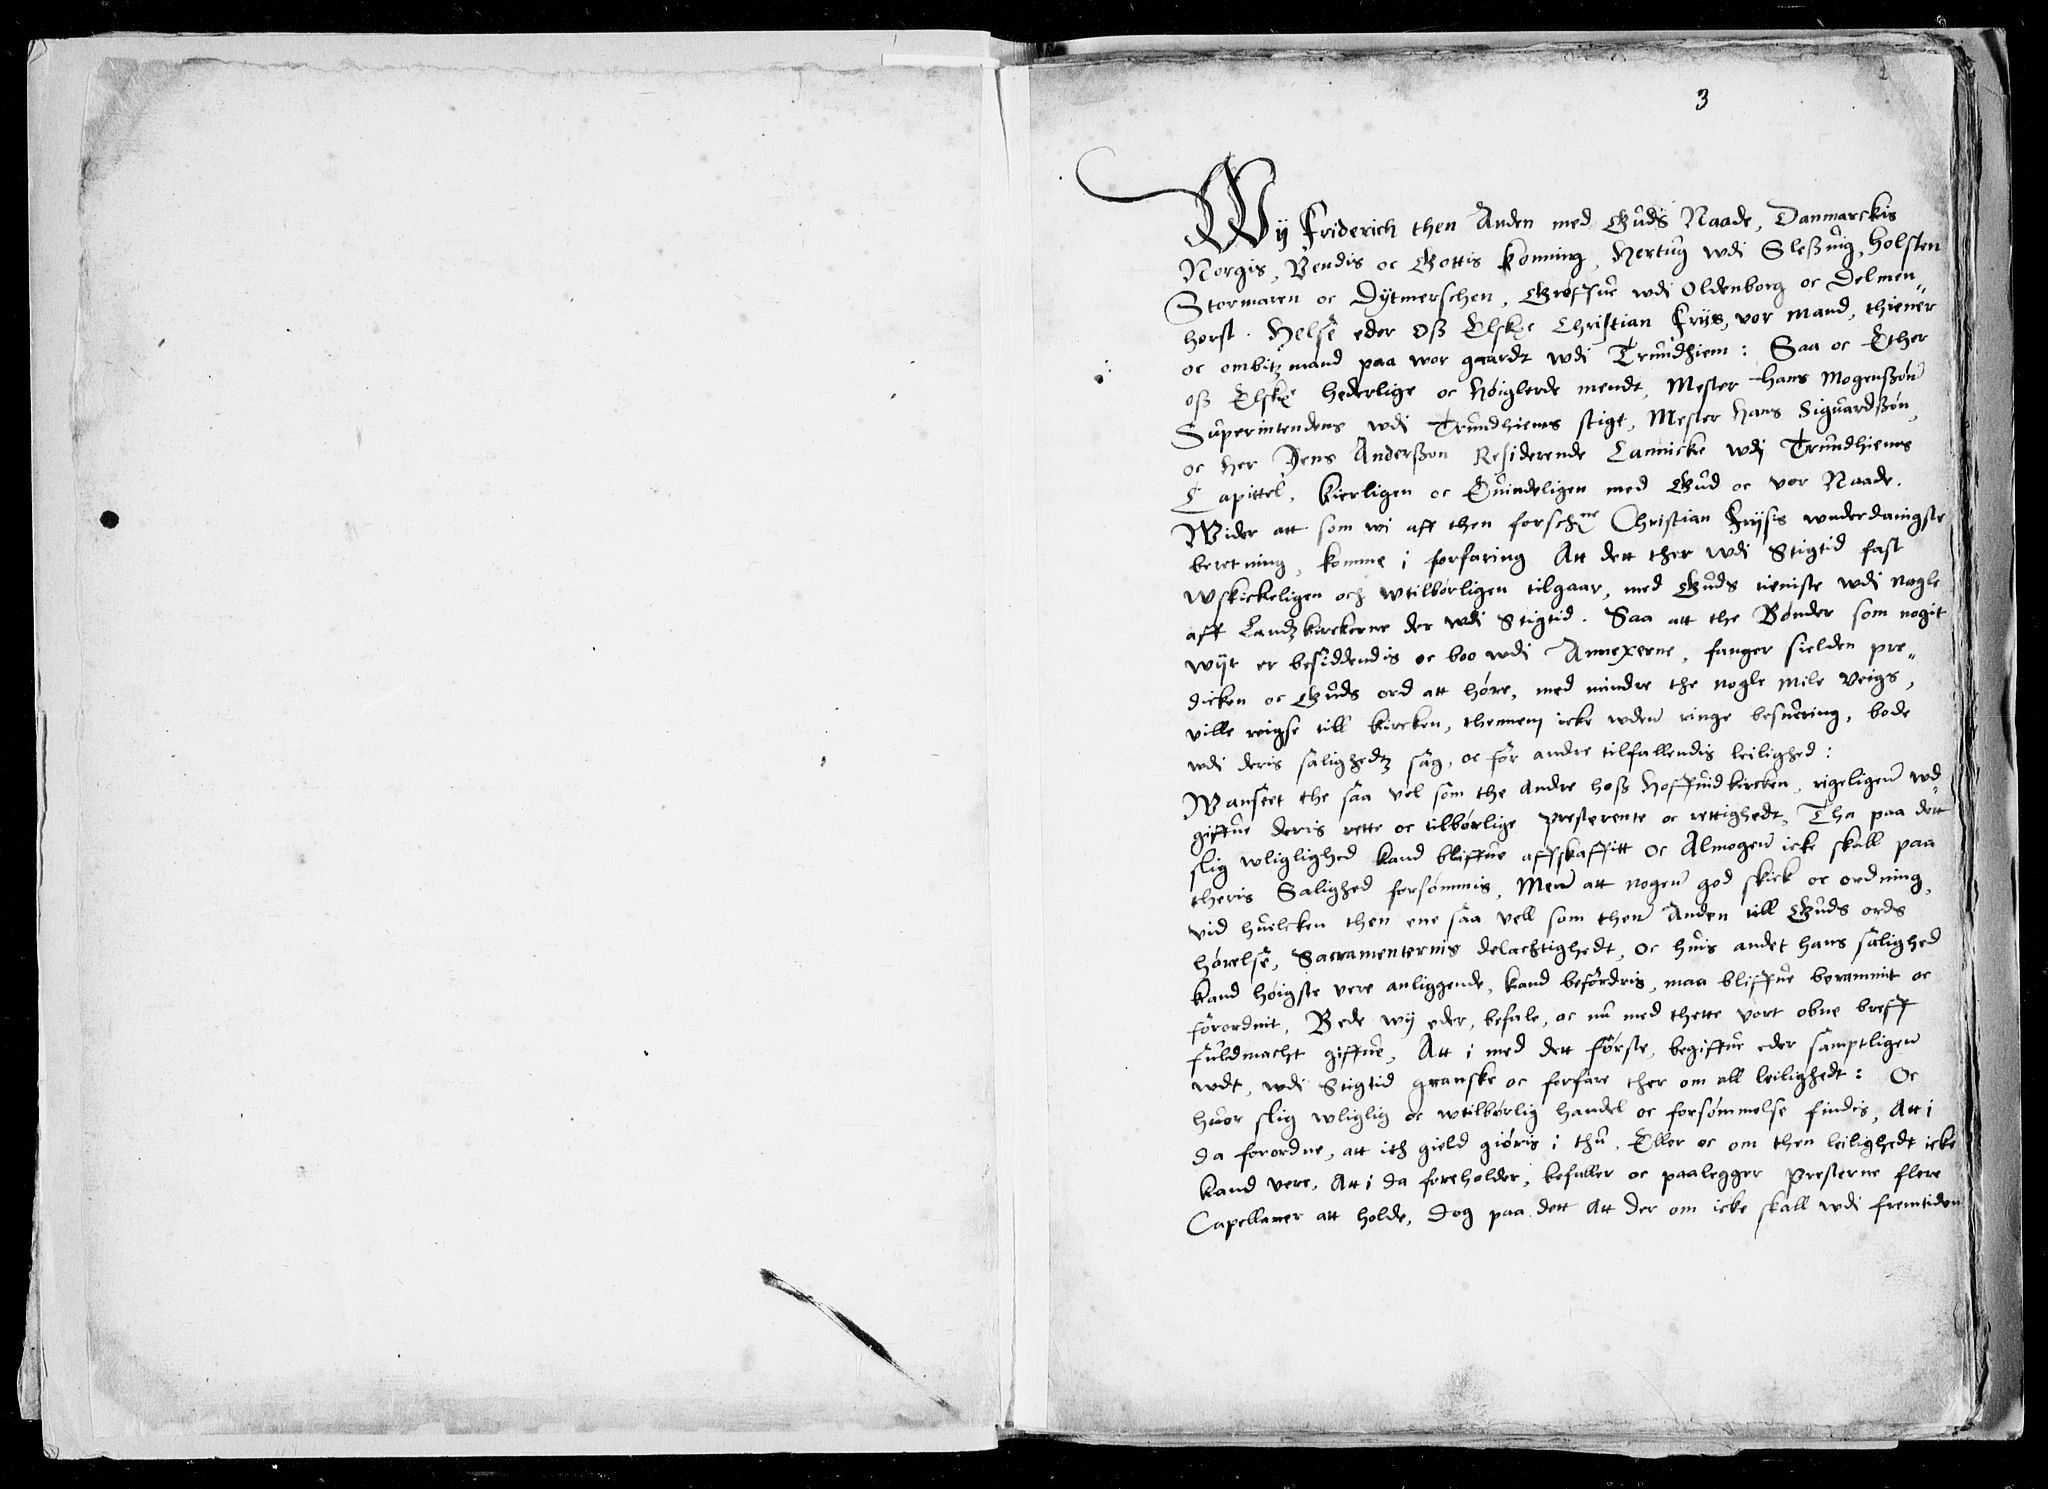 2
3
Wij Friderich then Anden med Guds Naade, Danmarckis
Norgis, Vendis oc Gottis konning, Hertug wdi Sleßuig, Holsten
Stormaren oc Dytmerschen, Greffue wdi Oldenborg oc Delmen„
horst. Helse eder oß Elske Christian Friis, vor mand, thiener
oc ombitzmand paa wor gaardt wdi Trundhiem: Saa oc Ether
oß Elske hederlige oc Høiglerde mendt, Mester Hans Mogenßøn
Superintendens wdi Trundhiems stigt, Mester Hans Siguardßøn,
oc Her Jens Anderßøn Residerende Cannicke wdj Trundhiems
Capittel, kierligen oc Euindeligen med Gud oc vor Naade.
Wider att som wi aff then forschne Christian Friisis wnderdanigste
beretning, komme i forfaring Att dett ther wdi Stigtid fast
wskickeligen och wtilbørligen tilgaar, med Guds tieniste wdi nogle
aff Landzkirckerne der wdi Stigtid. Saa att the Bønder som nogit
wijt er besiddendis oc boo wdi Annexerne, fanger sielden pre„
dicken oc Guds ord att høre, med mindre the nogle mile Veigs,
ville reigse till kircken, thennem icke wden ringe besuering, bode
wdi deris salighedtz sag, oc for andre tilfallendis leilighed:
Wanseet the saa vel som the andre hoß Hoffuidkircken, rigeligen wd
giffue deris rette oc tilbørlige Presterente oc rettighedt, Tha paa dett
slig wliglighed kand bliffue affskaffitt oc Almogen icke skall paa
theris Salighed forsømmis, Men att nogen god skick oc ordning,
vid huelcken then ene saa vell som then Anden till Guds ords
hørelse, Sacramenternis delachtighedt, oc huis andet hans salighed
kand høigste vere anliggende, kand befordris, maa bliffue berammit oc
forordnit, Bede wij eder, befale, oc nu med thette vort obne breff
fuldmacht giffue, Att i med dett første, begiffue eder samptligen
wdt, wdi Stigtid granske oc forfare ther om all leilighedt: Oc
huor slig wliglig oc wtilbørlig handel oc forsømmelse findis, Att i
da forordne, att ith gield giøris i thu, Eller oc om then leilighedt icke
kand vere, Att i da foreholder, befaller oc paalegger Presterne flere
Capellaner att holde, Dog paa dett Att der om icke skall wdi fremtiden